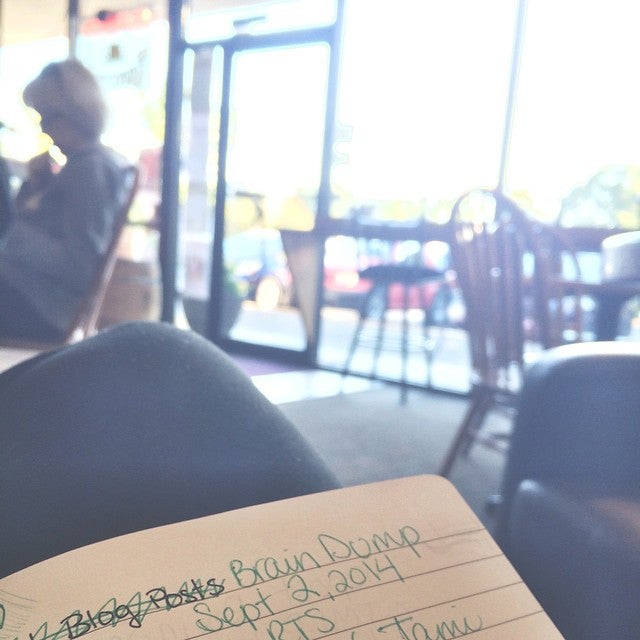 Blog Posts Brain Dump
Sept 2, 2014
RTS
Tami